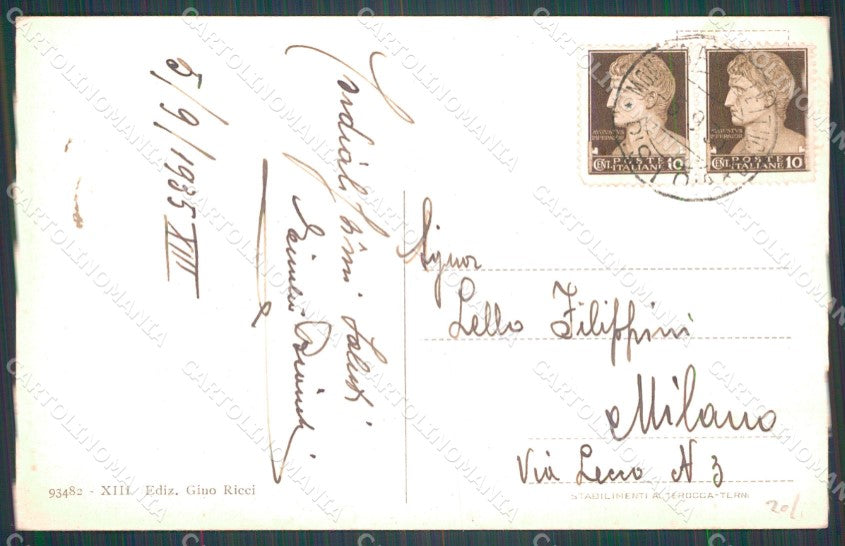 5/9/1935 XIII
Cordialissimi saluti
Signor
Lello Filippini
Milano
Via Lecco N 3
AVGVSTVS
IMPERATOR
CENT. POSTE ITALIANE 10
AVGVSTVS
IMPERATOR
CENT. POSTE ITALIANE 10
93482 - XIII Ediz. Gino Ricci
STABILIMENTI ALTEROCCA-TERNI
20/
CARTOLINOMANIA